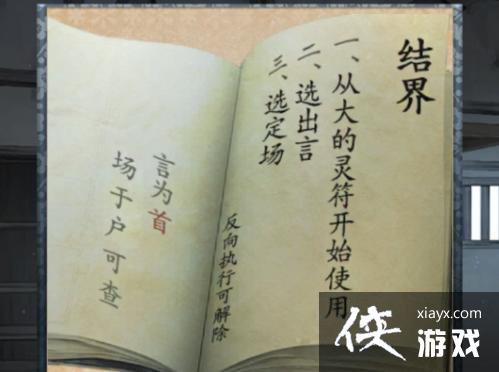 结界
一、从大的灵符开始使用
二、选出言
三、选定场
反向执行可解除
言为首
场于户可查
xiayx.com
侠游戏